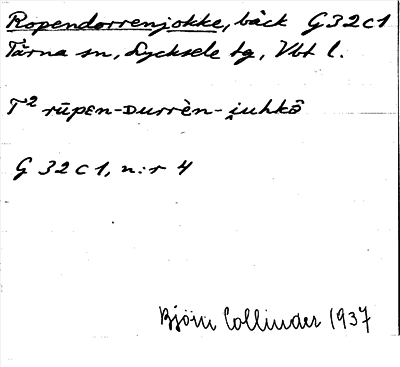 Ropendorrenjokke, bäck G32c1
Tärna sn, Lycksele lg, Vbt l.
T² rūpᴇn-ᴅurrèn-i̯uhkô
G 32 C 1, n:r 4
Björn Collinder 1937